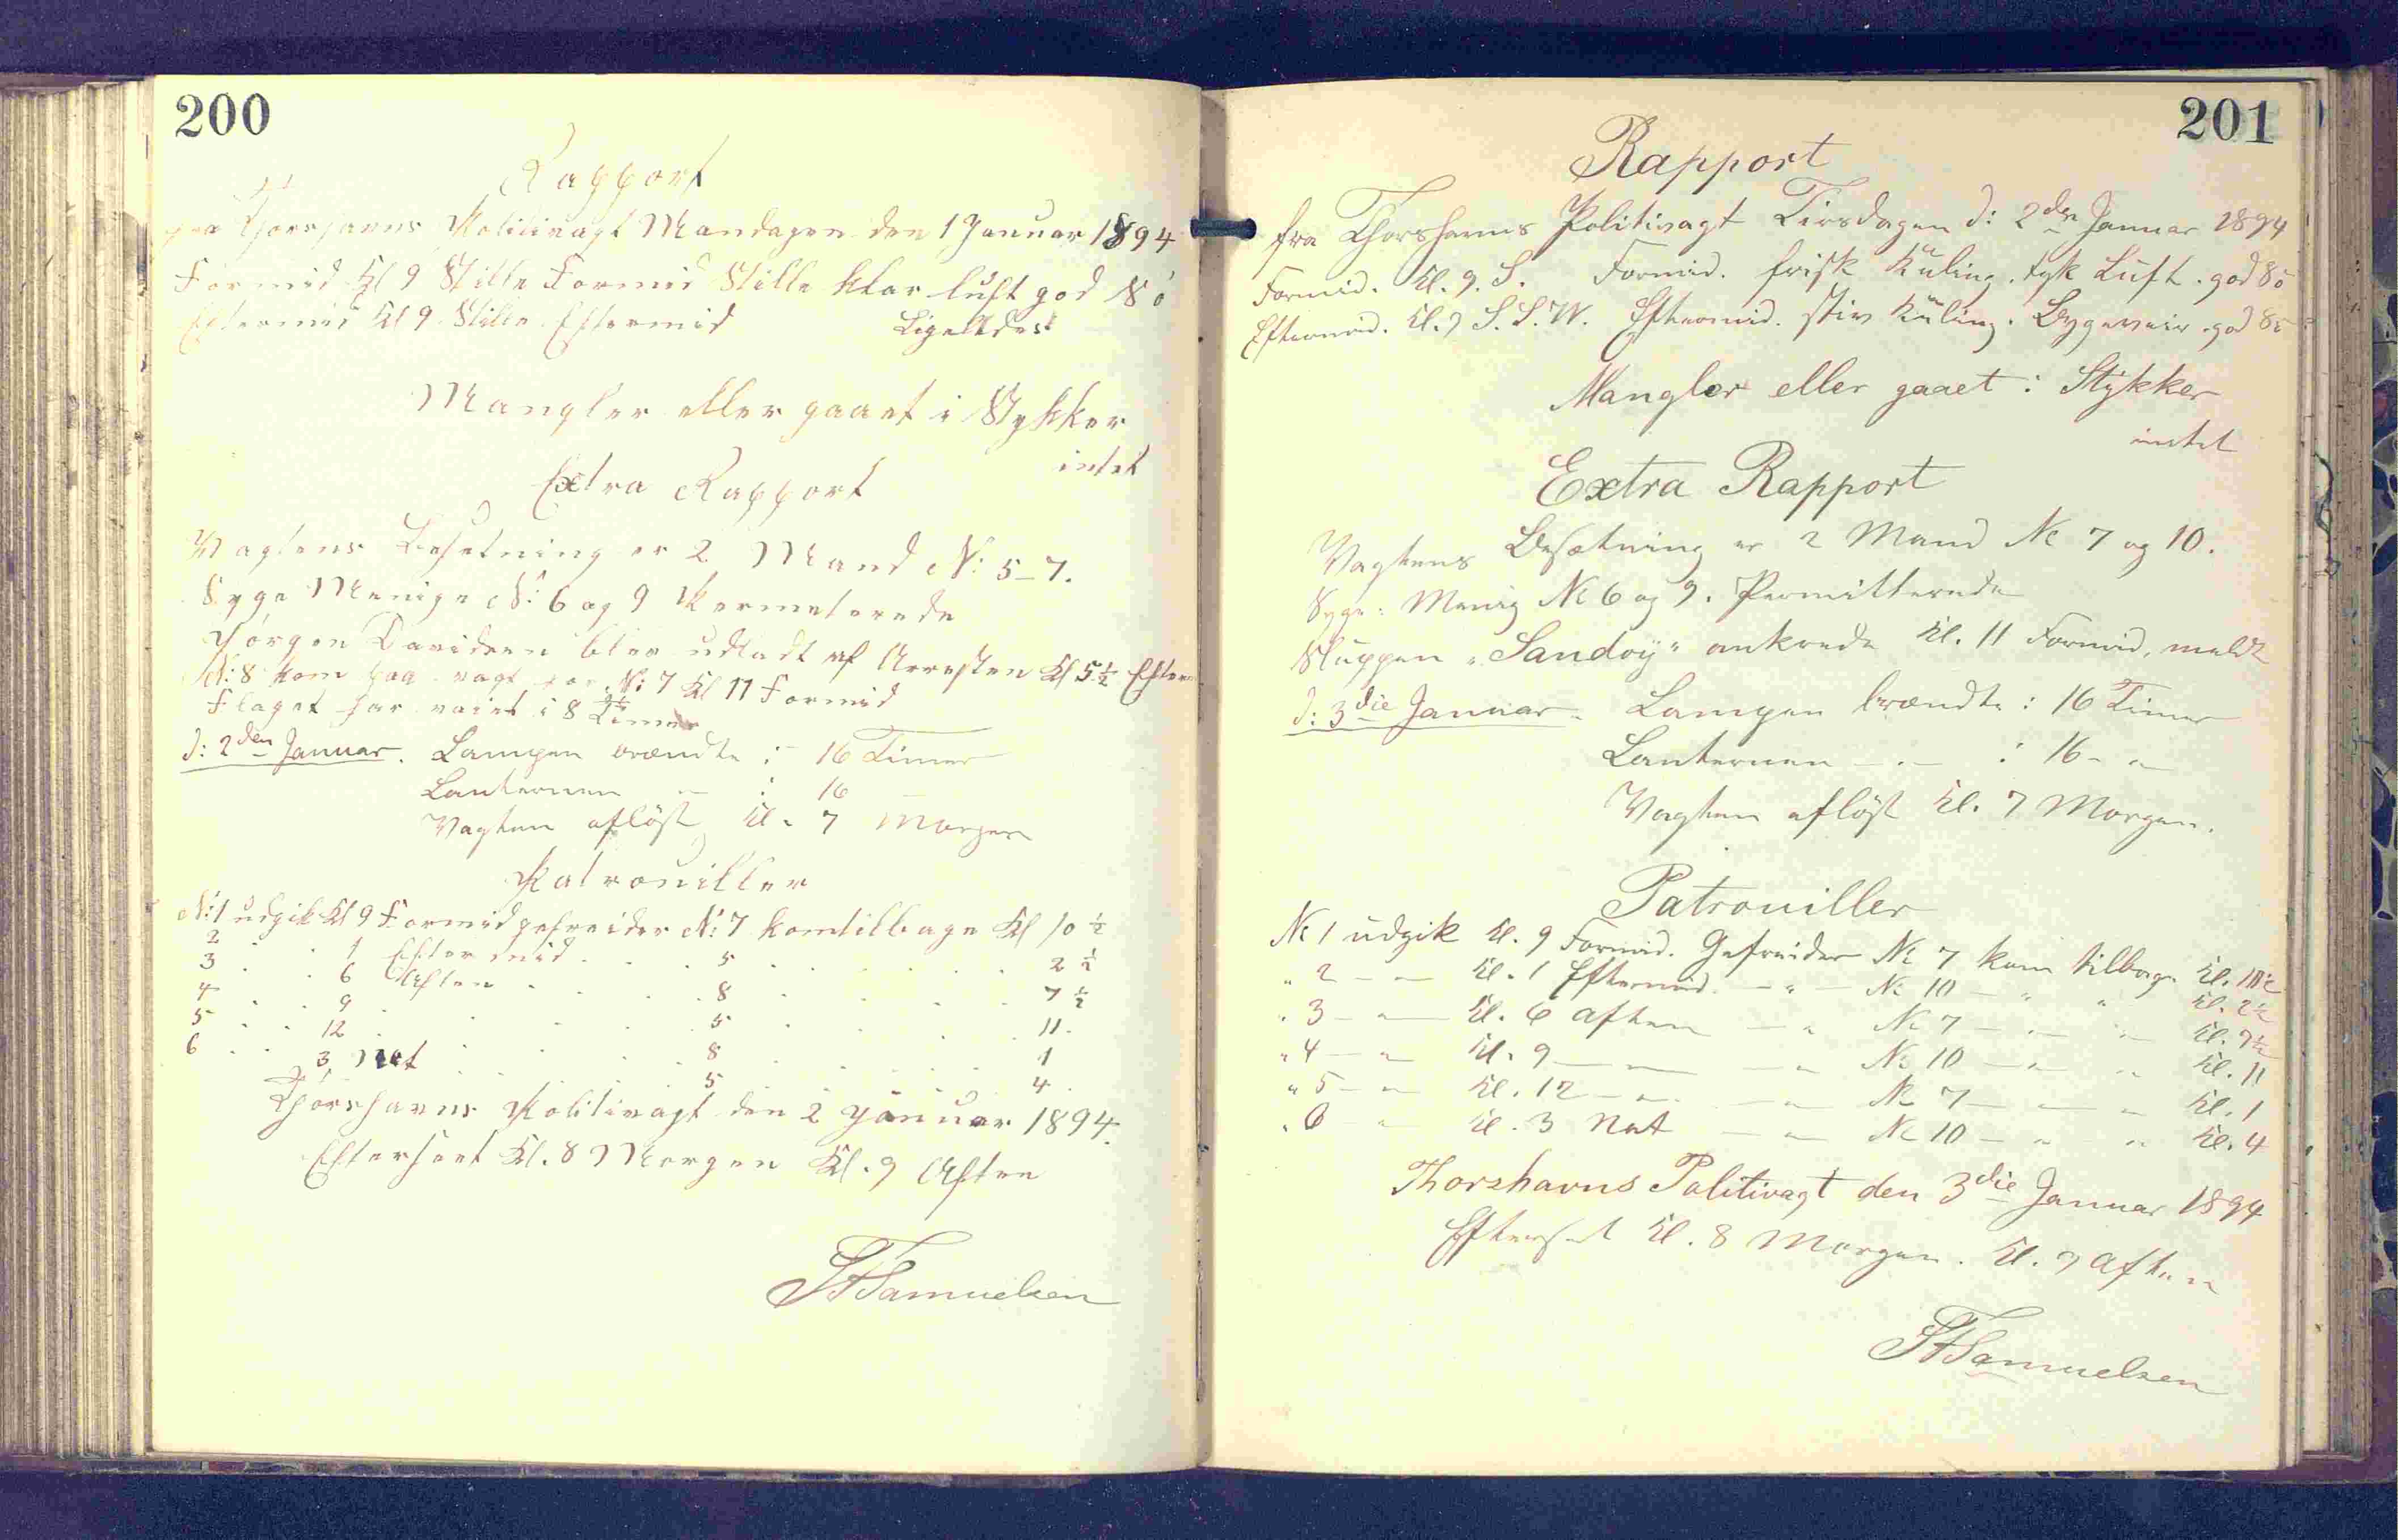 200
Rapport
fra Thorshavns Politivagt Mandagen den 1 Januar 1894
Formid Kl 9 Stille Formid Stille klar luft god Sö
Eftermid Kl 9 Stille Eftermid Ligeledes
Mangler eller gaaet i Stykker
intet
Extra Rapport
Vagtens Besetning er 2 Mand N: 5-7.
Syge Menige N: 6 og 9 Permeterede
Jörgen Davidsen blev udladt af Arresten Kl 5½ Efterm
N: 8 kom paa vagt for N: 7 Kl 11 Formid
Flaget har vaiet i 8½ Timer
d: 2den Januar. Lampen brændte : 16 Timer
Lanternen — : 16 —
Vagten aflöst Kl. 7 Morgen
Patrouiller
N: 1 udgik Kl 9 Formid gefreider N: 7 kom tilbage Kl 10½
2 . . 1 Eftermid . . 5 . . . . 2½
3 . . 6 Aften . . . 8 . . . . 7½
4 . . 9 . . . . 5 . . . . 11.
5 . . 12 . . . . 8 . . . . 1
6 . . 3 Nat . . . 5 . . . . 4.
Thorshavns Politivagt den 2 Januar 1894.
Efterseet Kl. 8 Morgen Kl. 9 Aften
Samuelsen
201
Rapport
fra Thorshavns Politivagt Tirsdagen d: 2den Januar 1894
Formid. Kl. 9. S. Formid. frisk Kuling. tyk Luft. god Sö
Eftermid. Kl. 9 S.S.W. Eftermid. stiv Kuling. Bygeveir. god Sö
Mangler eller gaaet i Stykker
intet
Extra Rapport
Vagtens Besætning er 2 Mand No 7 og 10.
Syge: Menig No 6 og 9. Permitterede
Sluppen „Sandöy“ ankrede Kl. 11 Formid. meldt
d: 3die Januar. Lampen brændte : 16 Timer
Lanternen — „ — : 16 - „ —
Vagten aflöst Kl. 7 Morgen.
Patrouiller
No 1 udgik Kl. 9 Formid. Gefreider No 7 kom tilbage Kl. 10½
„ 2 — „ — Kl. 1 Eftermid. — „ — No 10 — „ „ Kl. 2½
„ 3 — „ — Kl. 6 Aften — „ No 7 — „ — „ — Kl. 7½
„ 4 — „ Kl. 9 — „ — — „ No 10 — „ „ Kl. 11
„ 5 — „ Kl. 12 — „ — „ No 7 — „ — „ Kl. 1
„ 6 „ Kl. 3 Nat — „ No 10 — „ „ Kl. 4
Thorshavns Politivagt den 3die Januar 1894
Efterset Kl. 8 Morgen. Kl. 9 Aften
Samuelsen